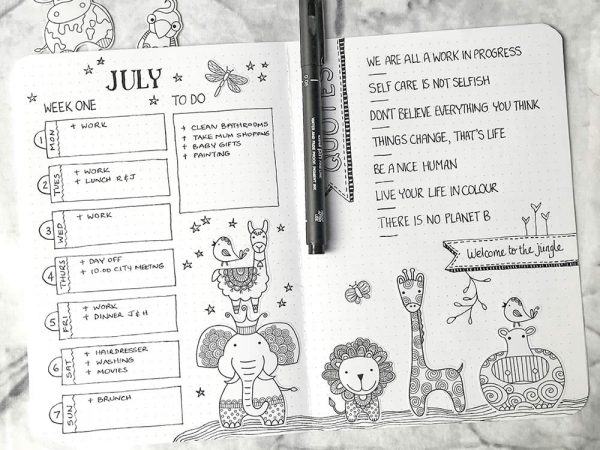 JULY
WEEK ONE
1
MON
+ WORK
2
TUES
+ WORK
+ LUNCH R & J
3
WED
+ WORK
4
THURS
+ DAY OFF
+ 10:00 CITY MEETING
5
FRI
+ WORK
+ DINNER J & H
6
SAT
+ HAIRDRESSER
+ WASHING
+ MOVIES
7
SUN
+ BRUNCH
TO DO
+ CLEAN BATHROOMS
+ TAKE MUM SHOPPING
+ BABY GIFTS
+ PAINTING
QUOTES
WE ARE ALL A WORK IN PROGRESS
SELF CARE IS NOT SELFISH
DON'T BELIEVE EVERYTHING YOU THINK
THINGS CHANGE, THAT'S LIFE
BE A NICE HUMAN
LIVE YOUR LIFE IN COLOUR
THERE IS NO PLANET B
Welcome to the jungle